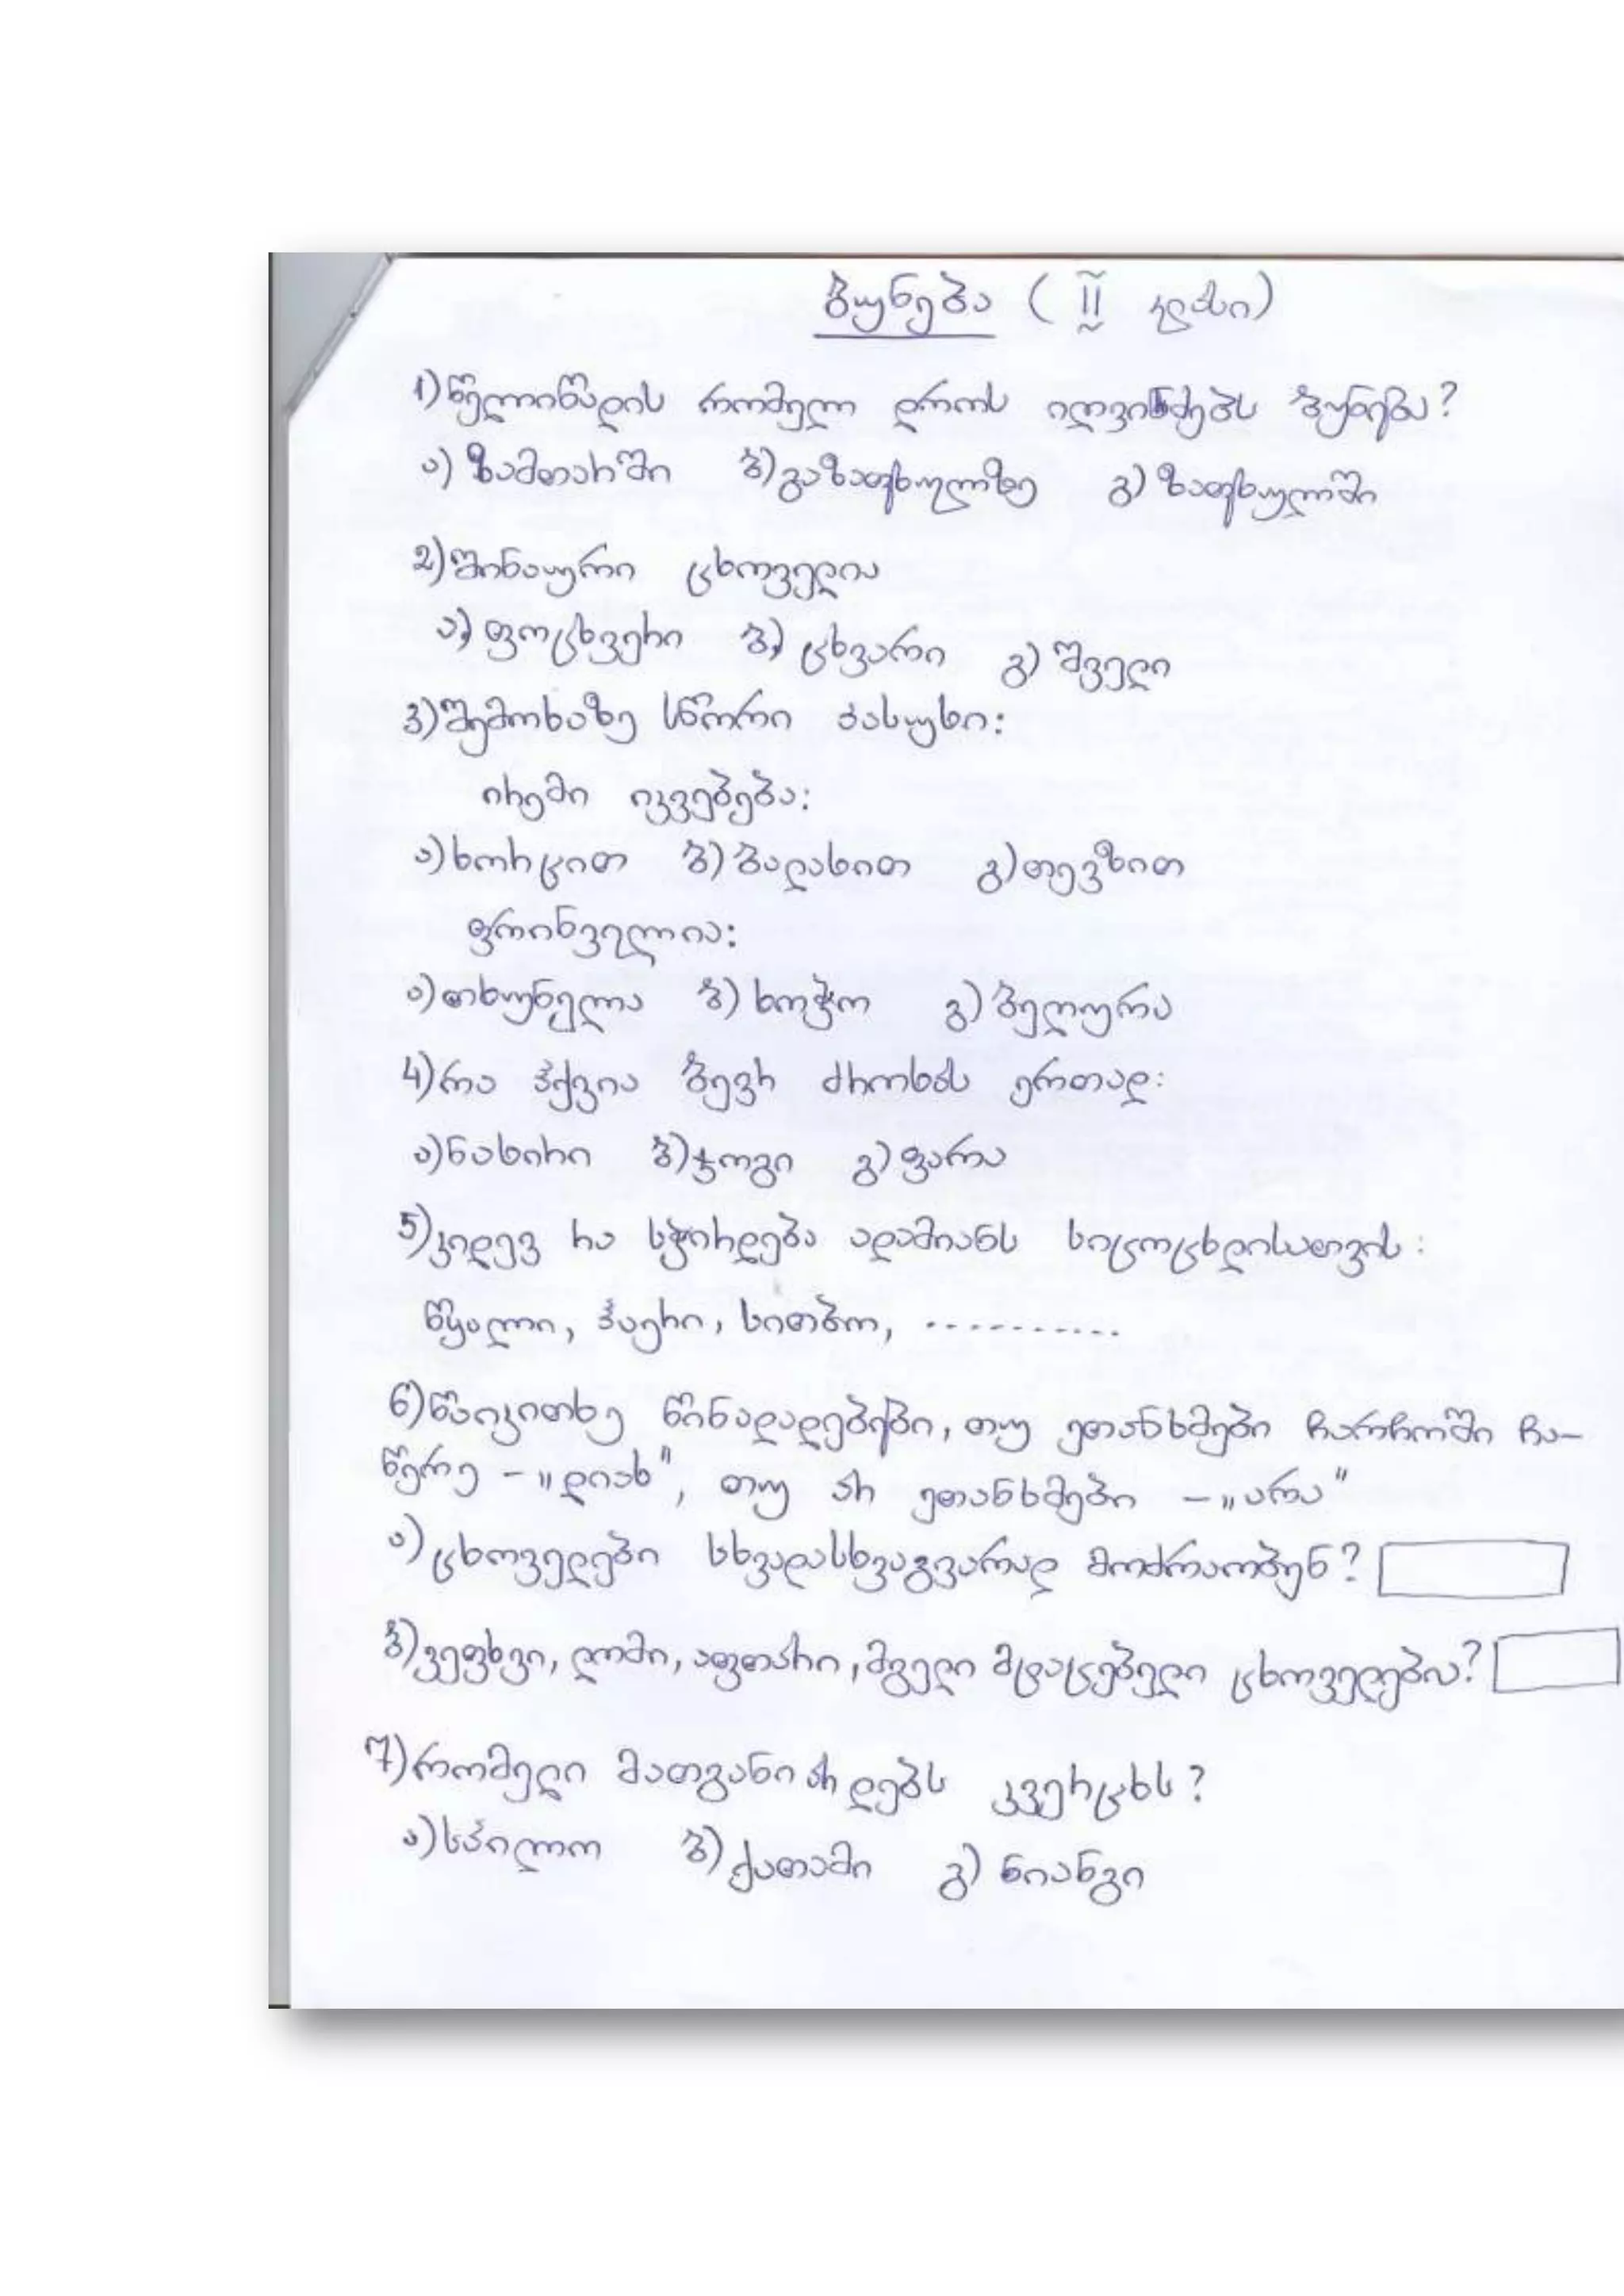 ბუნება (II კლასი)
1) წელიწადის რომელ დროს იღვიძებს ბუნება?
ა) ზამთარში ბ) გაზაფხულზე გ) ზაფხულში
2) შინაური ცხოველია
ა) ფოცხვერი ბ) ცხვარი გ) შველი
3) შემოხაზე სწორი პასუხი:
ირემი იკვებება:
ა) ხორცით ბ) ბალახით გ) თევზით
ფრინველია:
ა) თხუნელა ბ) ხოჭო გ) ბეღურა
4) რა ჰქვია ბევრ ძროხას ერთად:
ა) ნახირი ბ) ჯოგი გ) ფარა
5) კიდევ რა სჭირდება ადამიანს სიცოცხლისათვის:
წყალი, ჰაერი, სითბო, ..........
6) წაიკითხე წინადადებები, თუ ეთანხმები ჩარჩოში ჩა-
წერე - „დიახ", თუ არ ეთანხმები - „არა"
ა) ცხოველები სხვადასხვაგვარად მოძრაობენ?
ბ) ვეფხვი, ლომი, აფთარი, მგელი მტაცებელი ცხოველებია?
7) რომელი მათგანი არ დებს კვერცხს?
ა) სპილო ბ) ქათამი გ) ნიანგი